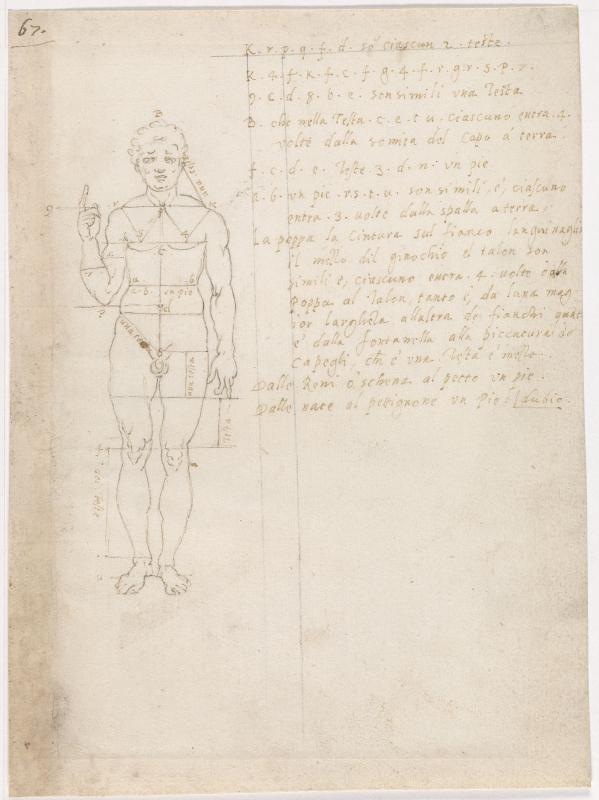 67.
K. r. p. q. f. d. so ciascun 2. teste.
K. 4. f. K. f. c. f. g. 4. f. r. g. r. s. p. 7.
9. c. d. 8. b. e. son simili una Testa
B. che nella Testa. c. e. t. u. ciascuno entra. 4.
volte dalla somita del Capo a terra
f. c. d. e. Teste. 3. d. n. un pie
a. b. un pie. r s. t. u. son simili, e, ciascuno
entra. 3. volte dalla spalla a terra.
La poppa la Cintura sul fianco
il mezzo dil ginochio el talon son
simili e, ciascuno entra. 4. volte dalla
Poppa al Talon, tanto è, da luna mag
ior larghezza allaltra de fianchi quāt
e dalla fontanella alla de
Capegli, ch è una Testa e mezzo.
Dalle Reni o schena al petto un pie.
Dalle nate al petignone un pie dubio.
B
9
r
K
f
s
4
c
7
a
b
a. b. un pie
d
p
una testa
una testa
Testa